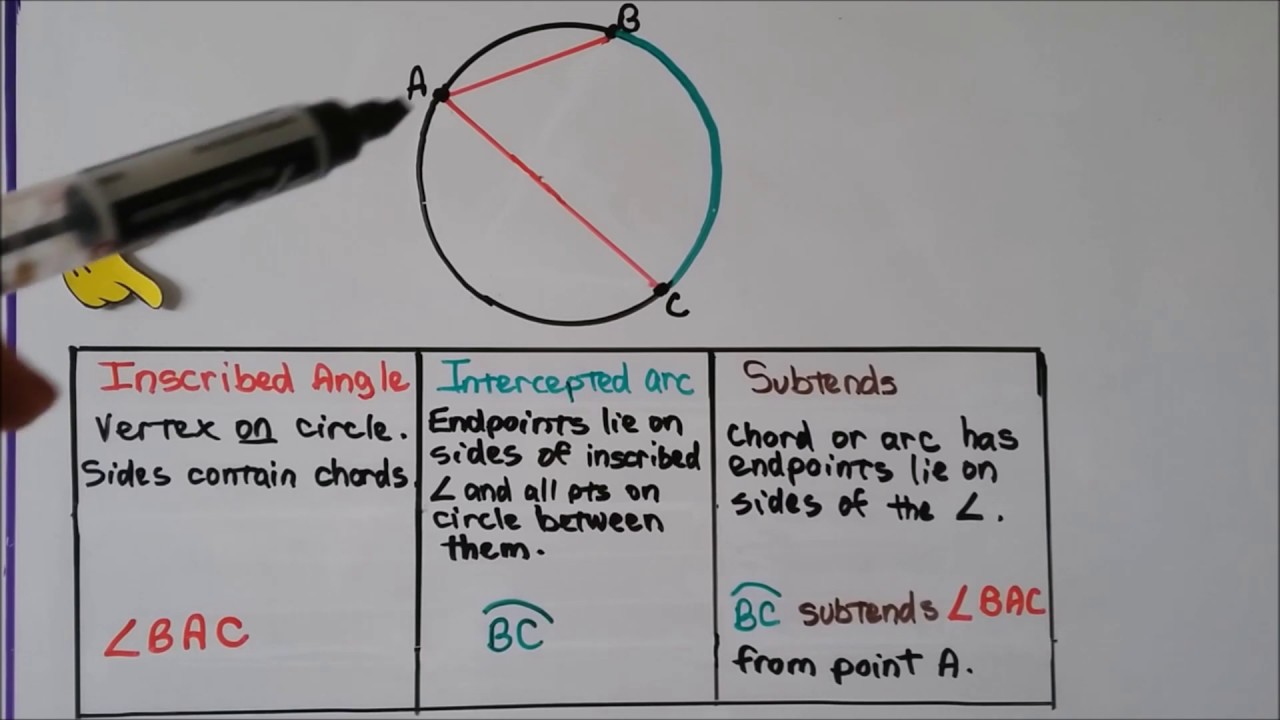 B
A
C
Inscribed Angle
Vertex on circle.
Sides contain chords.
∠BAC
Intercepted arc
Endpoints lie on
sides of inscribed
∠ and all pts on
circle between
them.
BC
Subtends
Chord or arc has
endpoints lie on
sides of the ∠.
BC subtends ∠BAC
from point A.